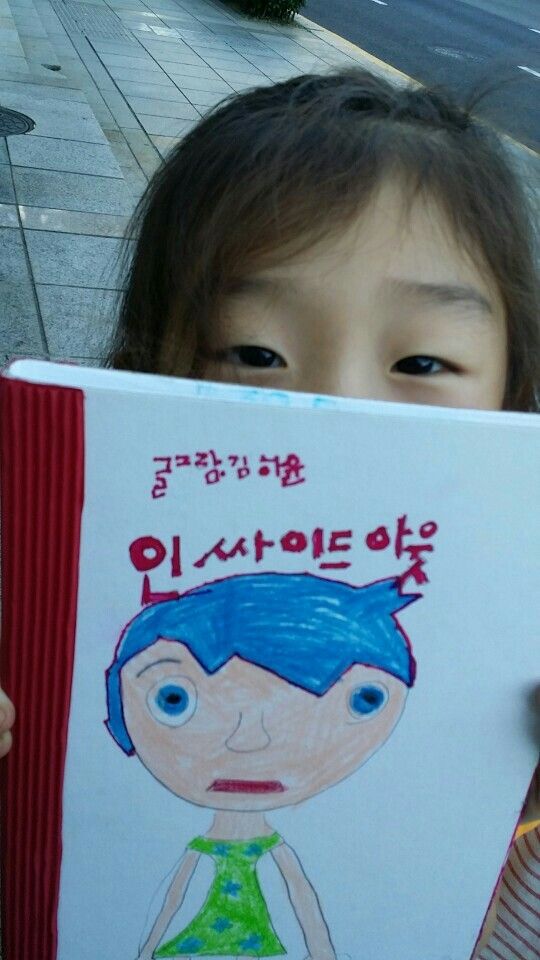 글그림.김하윤
인싸이드아웃